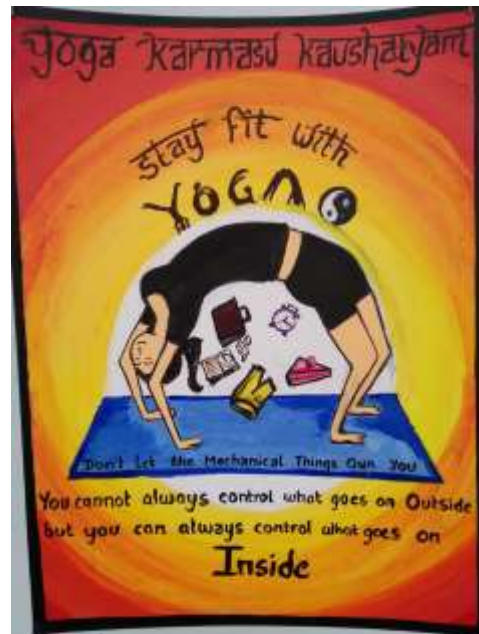 Yoga Karmasu Kaushalyam
stay fit with
YOGA
Don't Let the Mechanical Things Own You
You cannot always control what goes on Outside
but you can always control what goes on
Inside